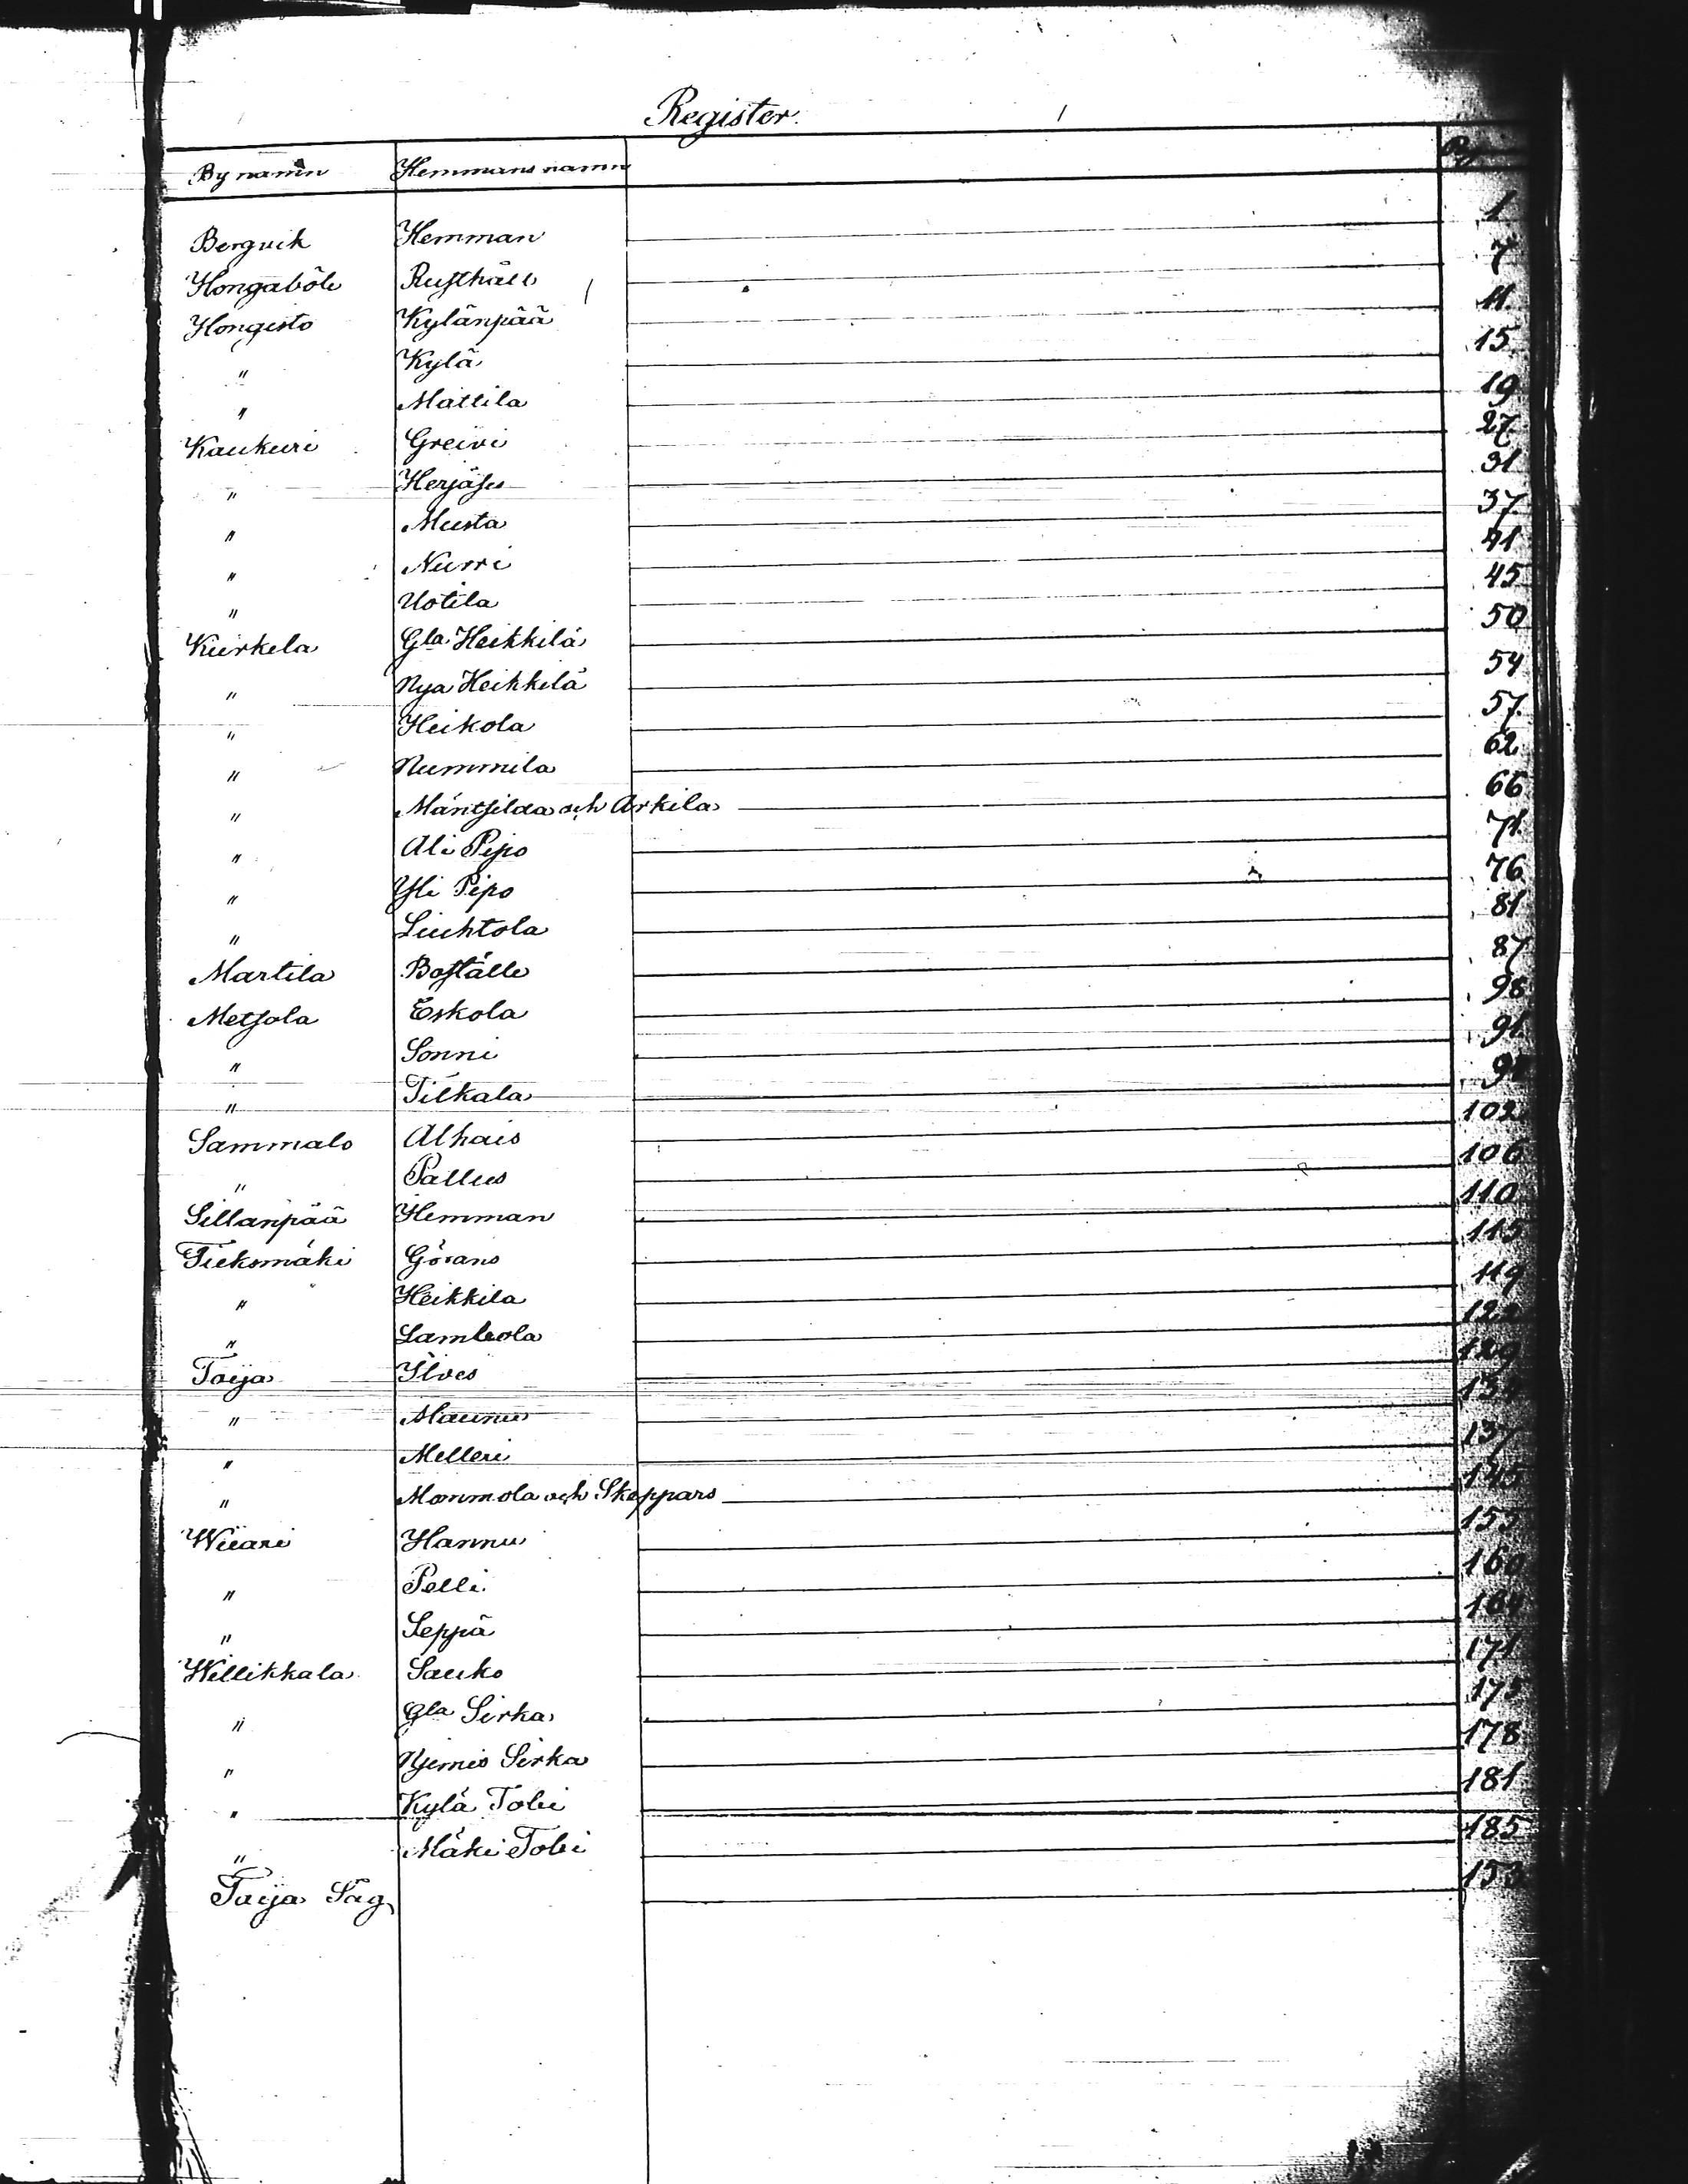 Register.
By namn Hemmans namn
Bergvik Hemman 1
Hongaböle Rusthåll 7
Hongisto Kylänpää 11.
" Kylä 15
" Mattila 19
Kaukuri Greivi 27.
" Herjäsis 31
" Musta 37.
" Nurri 41
" Uotila 45
Kurkela Gla Heikkilä 50
" Nya Heikkilä 54
" Heikola 57.
" Nummila 62
" Mäntsilda och Arkila 66
" Ali Pipo 71.
" Yli Pipo 76
" Luhtola 81
Martila Boställe 87
Metsola Eskola 98
" Sonni 91.
" Tilkala
Sammalo Alhais 102
" Pallus 106
Sillanpää Hemman 110
Tiksmäki Görans 115
" Heikkila 119
" Lambola 122
Taija Ilves 129
" Maunu 132
" Melleri 137
" Mommola och Skeppars 145
Wiiari Hannu 155
" Pelli 160
" Seppä 164
Willikkala Sauko 171
" Gla Sirka 175
" Njemis Sirka 178
" Kylä Tobi 181
" Mäki Tobi 185
Taija Såg 153